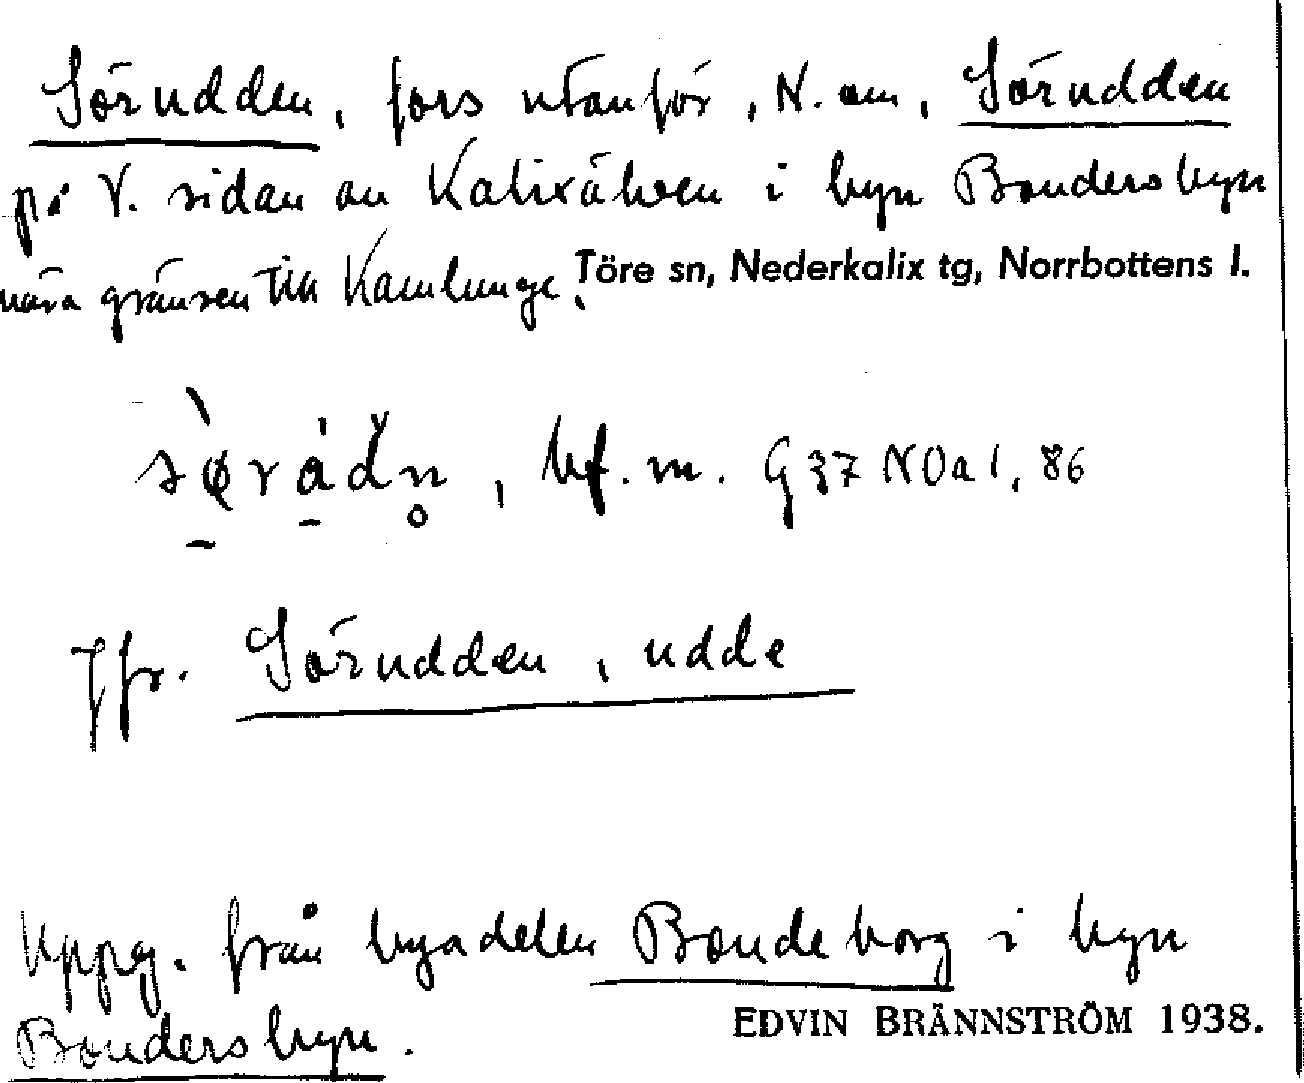 Sörudden, fors utanför, N. om, Sörudden
på V. sidan av Kalixälven i byn Bondersbyn
nära gränsen till Kamlunge. Töre sn, Nederkalix tg, Norrbottens l.
bf. m. G 37 NOa 1, 86
Jfr. Sörudden, udde
Uppg. från byadelen Bondeborg i byn
Bondersbyn.
EDVIN BRÄNNSTRÖM 1938.